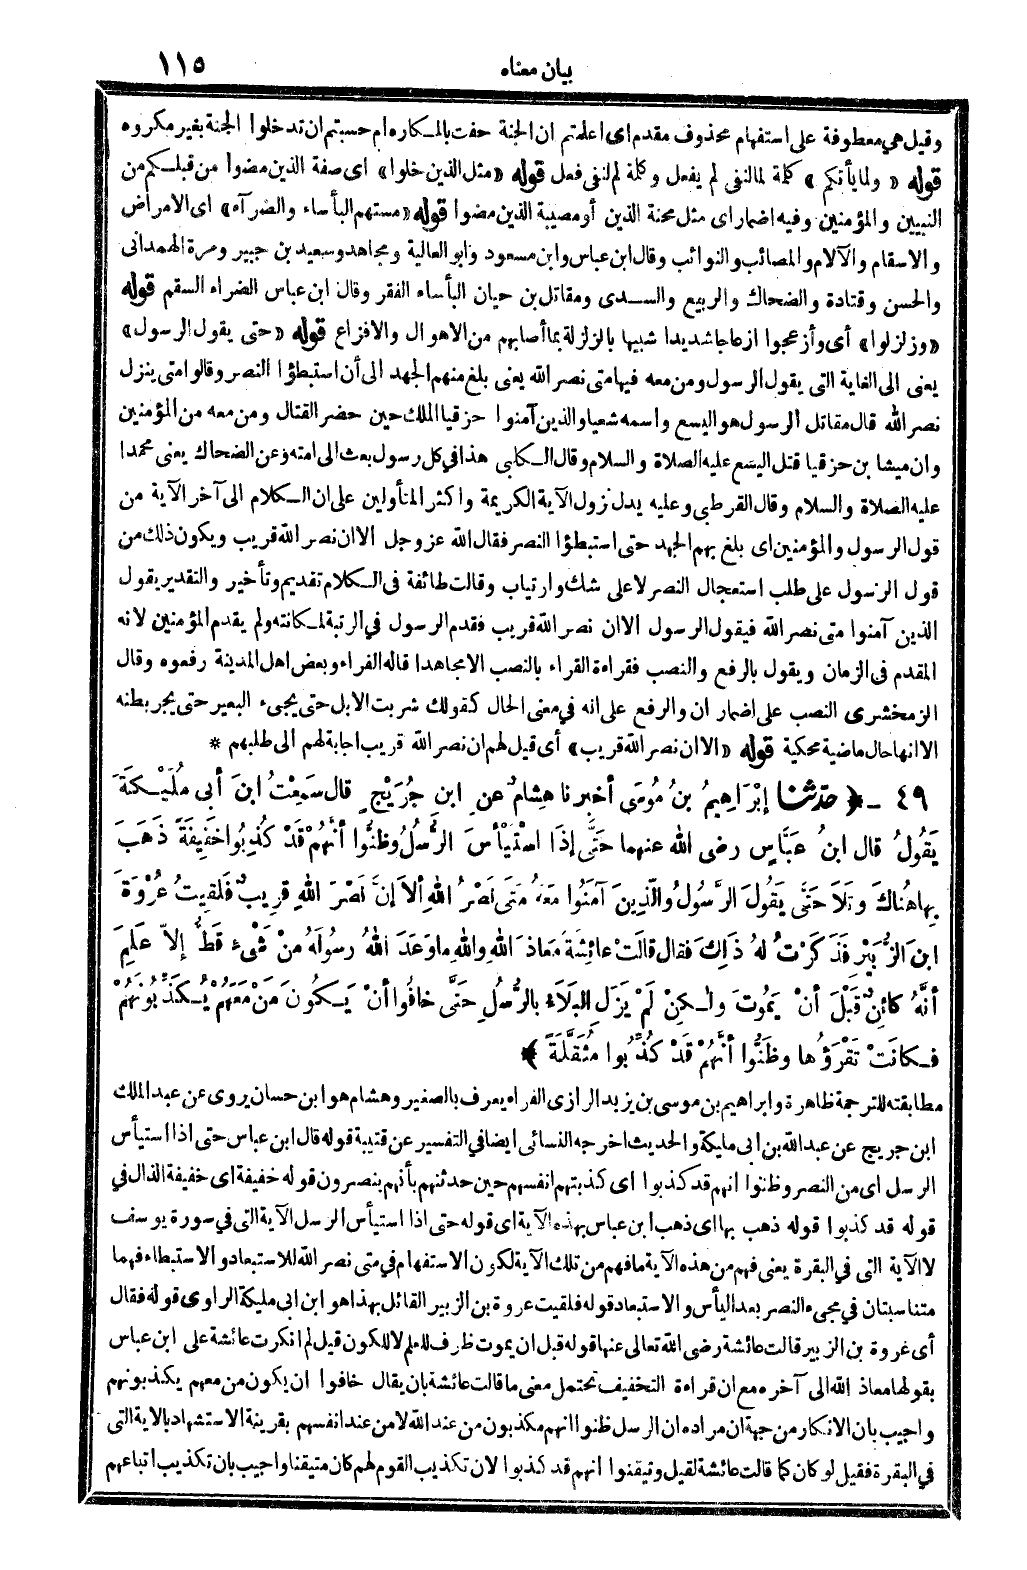 بيان معناه ١١٥
وقيل هي معطوفة على استفهام محذوف مقدم اى اعلمتم ان الجنة حفت بالمكاره ام حسبتم ان تدخلوا الجنة بغير مكروه
قوله « ولما يأتكم » كلمة لما لنفى لم يفعل وكلمة لم لنفى فعل قوله «مثل الذين خلوا» اى صفة الذين مضوا من قبلكم من
النبيين والمؤمنين وفيه اضمار اى مثل محنة الذين أو مصيبة الذين مضوا قوله «مستهم البأساء والضرآء» اى الامراض
والاسقام والآلام والمصائب والنوائب وقال ابن عباس وابن مسعود وابو العالية ومجاهد وسعيد بن جبير ومرة الهمدانى
والحسن وقتادة والضحاك والربيع والسدى ومقاتل بن حيان البأساء الفقر وقال ابن عباس الضراء السقم قوله
«وزلزلوا» أى وأزعجوا ازعاجا شديدا شبيها بالزلزلة بما أصابهم من الاهوال والافزاع قوله «حتى يقول الرسول»
يعنى الى الغاية التى يقول الرسول ومن معه فيها متى نصر الله يعنى بلغ منهم الجهد الى أن استبطؤا النصر وقالوا متى ينزل
نصر الله قال مقاتل الرسول هو اليسع واسمه شعيا والذين آمنوا حزقيا الملك حين حضر القتال ومن معه من المؤمنين
وان ميشا بن حزقيا قتل اليسع عليه الصلاة والسلام وقال الكلبى هذا في كل رسول بعث الى امته وعن الضحاك يعنى محمدا
عليه الصلاة والسلام وقال القرطبى وعليه يدل نزول الآية الكريمة واكثر المتأولين على ان الكلام الى آخر الآية من
قول الرسول والمؤمنين اى بلغ بهم الجهد حتى استبطؤا النصر فقال الله عز وجل الا ان نصر الله قريب ويكون ذلك من
قول الرسول على طلب استعجال النصر لا على شك وارتياب وقالت طائفة فى الكلام تقديم وتأخير والتقدير يقول
الذين آمنوا متى نصر الله فيقول الرسول الا ان نصر الله قريب فقدم الرسول في الرتبة لمكانته ولم يقدم المؤمنين لانه
المقدم فى الزمان ويقول بالرفع والنصب فقراءة القراء بالنصب الا مجاهدا قاله الفراء وبعض اهل المدينة رفعوه وقال
الزمخشرى النصب على اضمار ان والرفع على انه في معنى الحال كقولك شربت الابل حتى يجىء البعير حتى يجر بطنه
الا انها حال ماضية محكية قوله «الا ان نصر الله قريب» أى قيل لهم ان نصر الله قريب اجابة لهم الى طلبهم *
٤٩ ـ ﴿ حدثنا إِبْرَاهِيمُ بنُ مُوسَى أخبرنا هِشامٌ عنِ ابنِ جُرَيْجٍ قال سَمِعْتُ ابنَ أبى مُلَيْكَةَ
يَقُولُ قال ابنُ عَبَّاسٍ رضى الله عنهما حَتَّى إذَا اسْتَيْأسَ الرُّسُلُ وظَنُّوا أنَّهُمْ قَدْ كُذِبُوا خَفِيفَةً ذَهَبَ
بِها هُناكَ وتَلاَ حَتَّى يَقُولَ الرَّسُولُ والَّذِينَ آمَنُوا مَعَهُ مَتَى نَصْرُ اللهِ ألاَ إنَّ نَصْرَ اللهِ قرِيبٌ فَلَقِيتُ عُرْوَةَ
ابنَ الزُّبَيْرِ فَذَكَرْتُ لهُ ذَلِكَ فقال قالَتْ عائِشَةُ مَعَاذَ اللهِ واللهِ ما وَعَدَ اللهُ رسُولَهُ مِنْ شَىْءٍ قَطُّ إلاّ عَلِمَ
أنَّهُ كائِنٌ قَبْلَ أنْ يَمُوتَ ولٰكِنْ لَمْ يَزَلِ البَلاَءُ بالرُّسُلِ حَتَّى خافُوا أنْ يَكُونَ مَنْ مَعَهُمْ يُكَذِّبُونَهُمْ
فَكانَتْ تَقْرَؤُها وظَنُّوا أنَّهُمْ قَدْ كُذِّبُوا مُثَقَّلَةً ﴾
مطابقته للترجمة ظاهرة وابراهيم بن موسى بن يزيد الرازى الفراء يعرف بالصغير وهشام هو ابن حسان يروى عن عبد الملك
ابن جريج عن عبد الله بن ابى مليكة والحديث اخرجه النسائى ايضا في التفسير عن قتيبة قوله قال ابن عباس حتى اذا استيأس
الرسل اى من النصر وظنوا انهم قد كذبوا اى كذبتهم انفسهم حين حدثتهم بأنهم ينصرون قوله خفيفة اى خفيفة الذال في
قوله قد كذبوا قوله ذهب بها اى ذهب ابن عباس بهذه الآية اى قوله حتى اذا استيأس الرسل الآية التى في سورة يوسف
لا الآية التى في البقرة يعنى فهم من هذه الآية ما فهم من تلك الآية لكون الاستفهام في متى نصر الله للاستبعاد والاستبطاء فهما
متناسبتان في مجىء النصر بعد اليأس والاستبعاد قوله فلقيت عروة بن الزبير القائل بهذا هو ابن ابى مليكة الراوى قوله فقال
أى عروة بن الزبير قالت عائشة رضى الله تعالى عنها قوله قبل ان يموت ظرف للعلم لا للكون قيل لم انكرت عائشة على ابن عباس
بقولها معاذ الله الى آخره مع ان قراءة التخفيف تحتمل معنى ما قالت عائشة بان يقال خافوا ان يكون من معهم يكذبونهم
واجيب بان الانكار من جهة ان مراده ان الرسل ظنوا انهم مكذبون من عند الله لا من عند انفسهم بقرينة الاستشهاد بالاية التى
في البقرة فقيل لو كان كما قالت عائشة لقيل وتيقنوا انهم قد كذبوا لان تكذيب القوم لهم كان متيقنا واجيب بان تكذيب اتباعهم